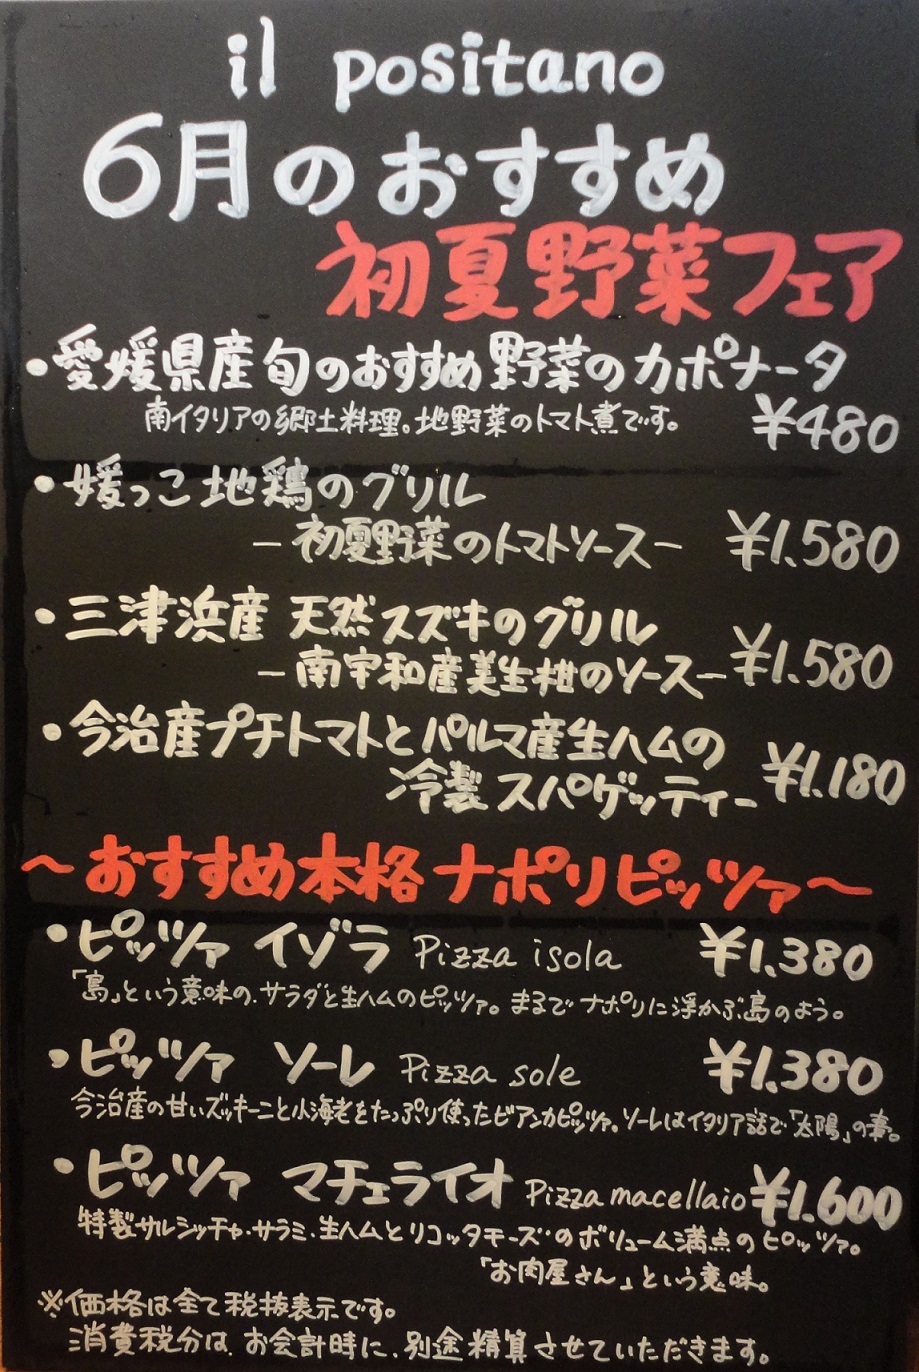 il positano
6月のおすすめ
初夏野菜フェア
・愛媛県産旬のおすすめ野菜のカポナータ
南イタリアの郷土料理。地野菜のトマト煮です。 ¥480
・媛っこ地鶏のグリル
－初夏野菜のトマトソース－ ¥1.580
・三津浜産 天然スズキのグリル
－南宇和産美生柑のソース－ ¥1.580
・今治産プチトマトとパルマ産生ハムの
冷製スパゲッティー ¥1.180
～おすすめ本格ナポリピッツァ～
・ピッツァ イゾラ Pizza isola ¥1.380
「島」という意味の、サラダと生ハムのピッツァ。まるでナポリに浮かぶ島のよう。
・ピッツァ ソーレ Pizza sole ¥1.380
今治産の甘いズッキーニと小海老をたっぷり使ったビアンカピッツァ。ソーレはイタリア語で「太陽」の事。
・ピッツァ マチェライオ Pizza macellaio ¥1.600
特製サルシッチャ・サラミ・生ハムとリコッタチーズのボリューム満点のピッツァ。
「お肉屋さん」という意味。
※価格は全て税抜表示です。
消費税分は、お会計時に、別途精算させていただきます。